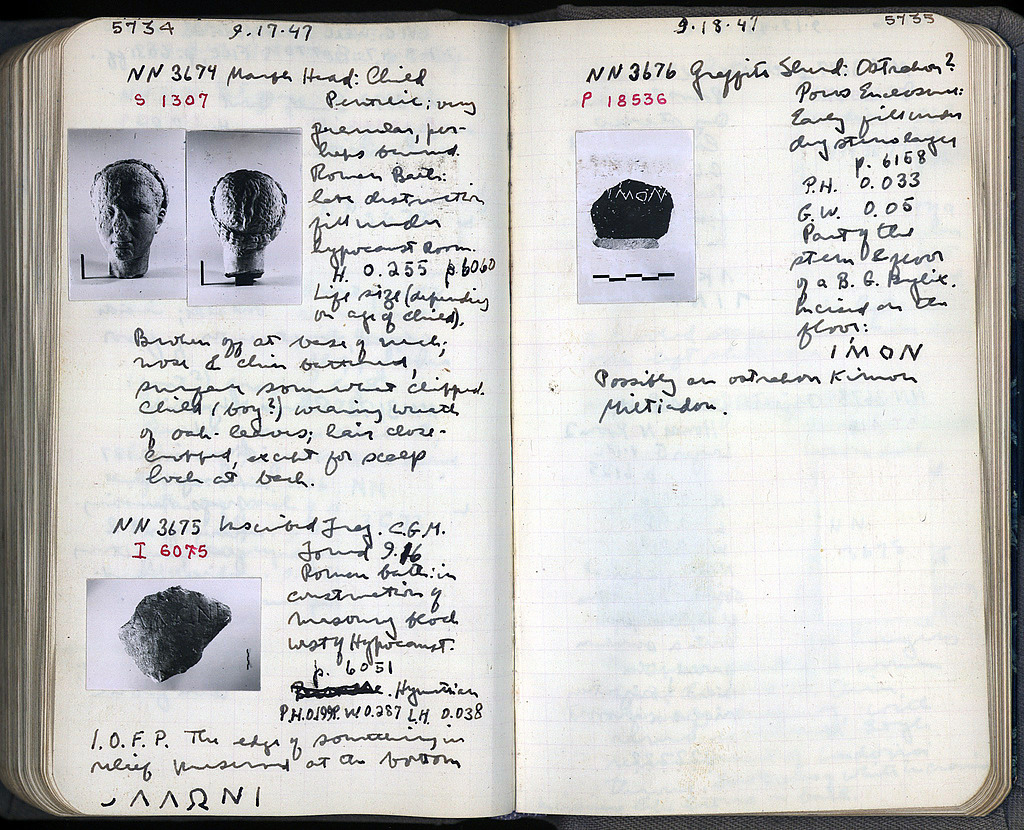 5734 9·17·47
NN 3674 Marble Head: Child
S 1307
Pentelic; very
granular, per-
haps burned.
Roman Bath:
late destruction
fill under
hypocaust room.
H. 0.255 p. 6060
Life size (depending
on age of child).
Broken off at base of neck;
nose & chin battered,
surface somewhat chipped.
Child (boy?) wearing wreath
of oak-leaves; hair close-
cropped, except for scalp
lock at back.
NN 3675 Inscribed Frag. C.G.M.
I 6075
Found 9.16
Roman bath: in
construction of
masonry block
west of Hypocaust.
p. 6051
Hymettian
P.H. 0.199 P.W. 0.287 L.H. 0.038
I.O.F.P. The edge of something in
relief preserved at the bottom
ΛΛΩΝΙ
9·18·47 5735
NN 3676 Graffito Sherd: Ostrakon?
P 18536
Poros Enclosure:
Early fill under
dug stereo layer
p. 6158
P.H. 0.033
G.W. 0.05
Part of the
stem & floor
of a B.G. Kylix.
Incised on the
floor:
ΙΜΟΝ
Possibly an ostrakon Kimon
Miltiadou.
ΙΜΟΝ